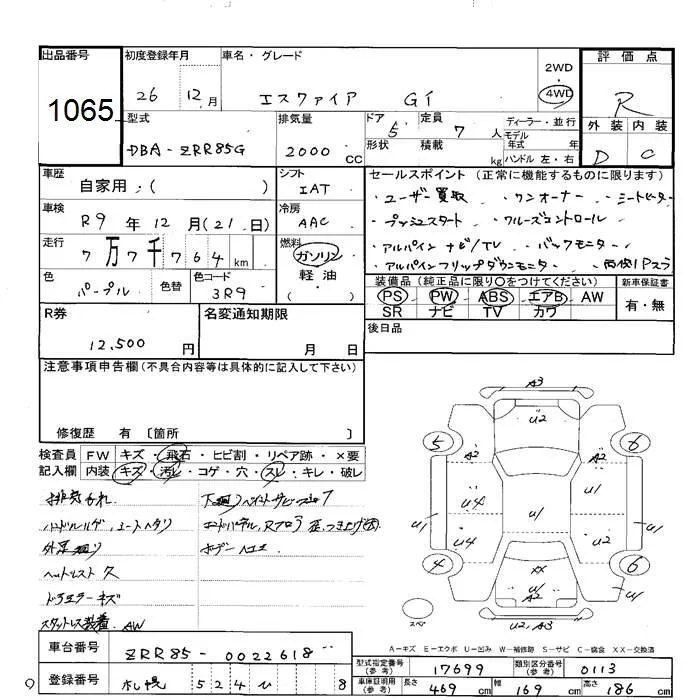 出品番号
1065
初度登録年月
26 12 月
車名・グレード
エスクァイア Gi
2WD
4WD
評価点
R
外装 内装
D C
型式
DBA-ZRR85G
排気量
2000 CC
ドア
5
定員
7 人
形状
積載
kg
ディーラー・並行
モデル
年式 年
ハンドル 左・右
車歴
自家用:( )
シフト
IAT
車検
R9 年 12 月(21 日)
冷房
AAC
走行
7万7千764 km
燃料
ガソリン
軽油
( )
色
パープル
色替
色コード
3R9
セールスポイント(正常に機能するものに限ります)
・ユーザー買取 ・ワンオーナー ・シートヒーター
・プッシュスタート ・クルーズコントロール
・アルパインナビ/TV ・バックモニター
・アルパインフリップダウンモニター ・両側Pスラ
装備品(純正品に限り○をつけてください)
PS PW ABS エアB AW
SR ナビ TV カワ
新車保証書
有・無
R券
12,500 円
名変通知期限
月 日
後日品
注意事項申告欄(不具合内容等は具体的に記入して下さい)
修復歴 有 〔箇所 〕
検査員
記入欄
FW キズ・飛石・ヒビ割・リペア跡・×要
内装 キズ・汚れ・コゲ・穴・スレ・キレ・破レ
排気かれ
外装廻り
ヘッドレスト欠
ドアミラーキズ
スタットレス装着 AW
A3
U2
5
6
A2
A2
U4
U4
U1
U1
U2
U1
4
6
XX
U1
A2
スペア
U2, A3
A-キズ E-エクボ U-凹み W-補修跡 S-サビ C-腐食 XX-交換済
車台番号
ZRR85-0022618
登録番号
札幌 524 ひ 8
型式指定番号
(参考)
17699
類別区分番号
(参考)
0113
車庫証明用
(参考)
長さ 469 cm
幅 169 cm
高さ 186 cm